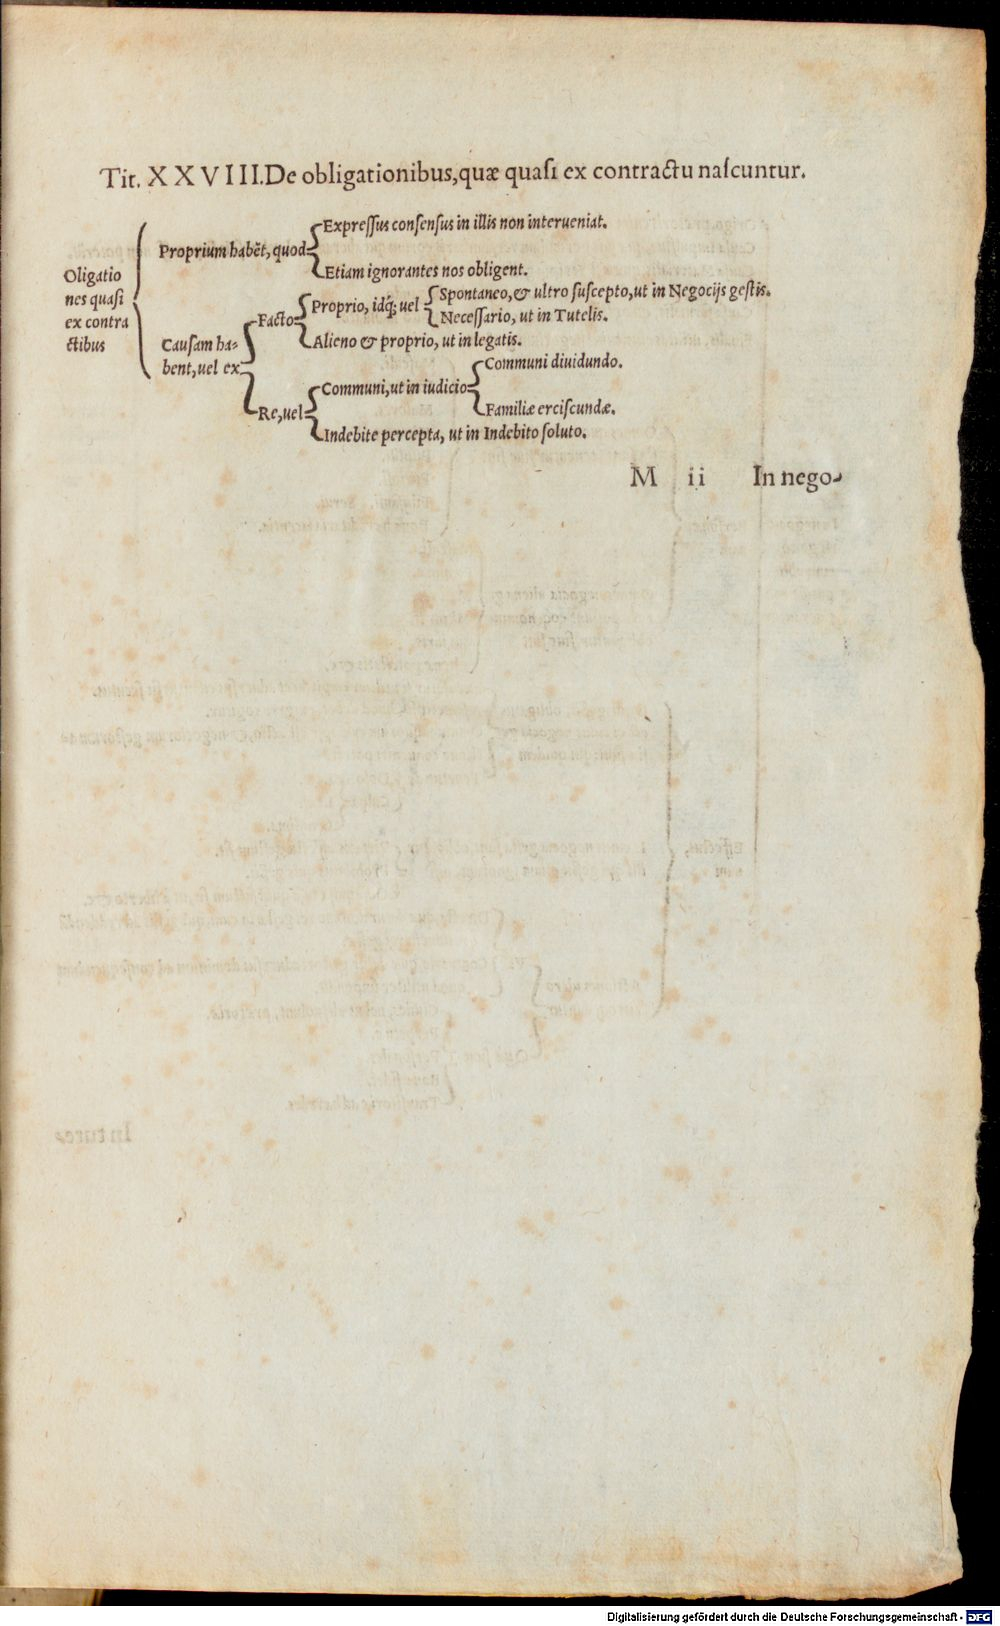 Tit. XXVIII. De obligationibus, quæ quasi ex contractu nascuntur.
Oligatio
nes quasi
ex contra
ctibus
Proprium habẽt, quod
Expressus consensus in illis non interueniat.
Etiam ignorantes nos obligent.
Causam ha-
bent, uel ex
Facto
Proprio, idq́; uel
Spontaneo, & ultro suscepto, ut in Negocijs gestis.
Necessario, ut in Tutelis.
Alieno & proprio, ut in legatis.
Re, uel
Communi, ut in iudicio
Communi diuidundo.
Familiæ erciscundæ.
Indebite percepta, ut in Indebito soluto.
M ii In nego-
Digitalisierung gefördert durch die Deutsche Forschungsgemeinschaft - DFG